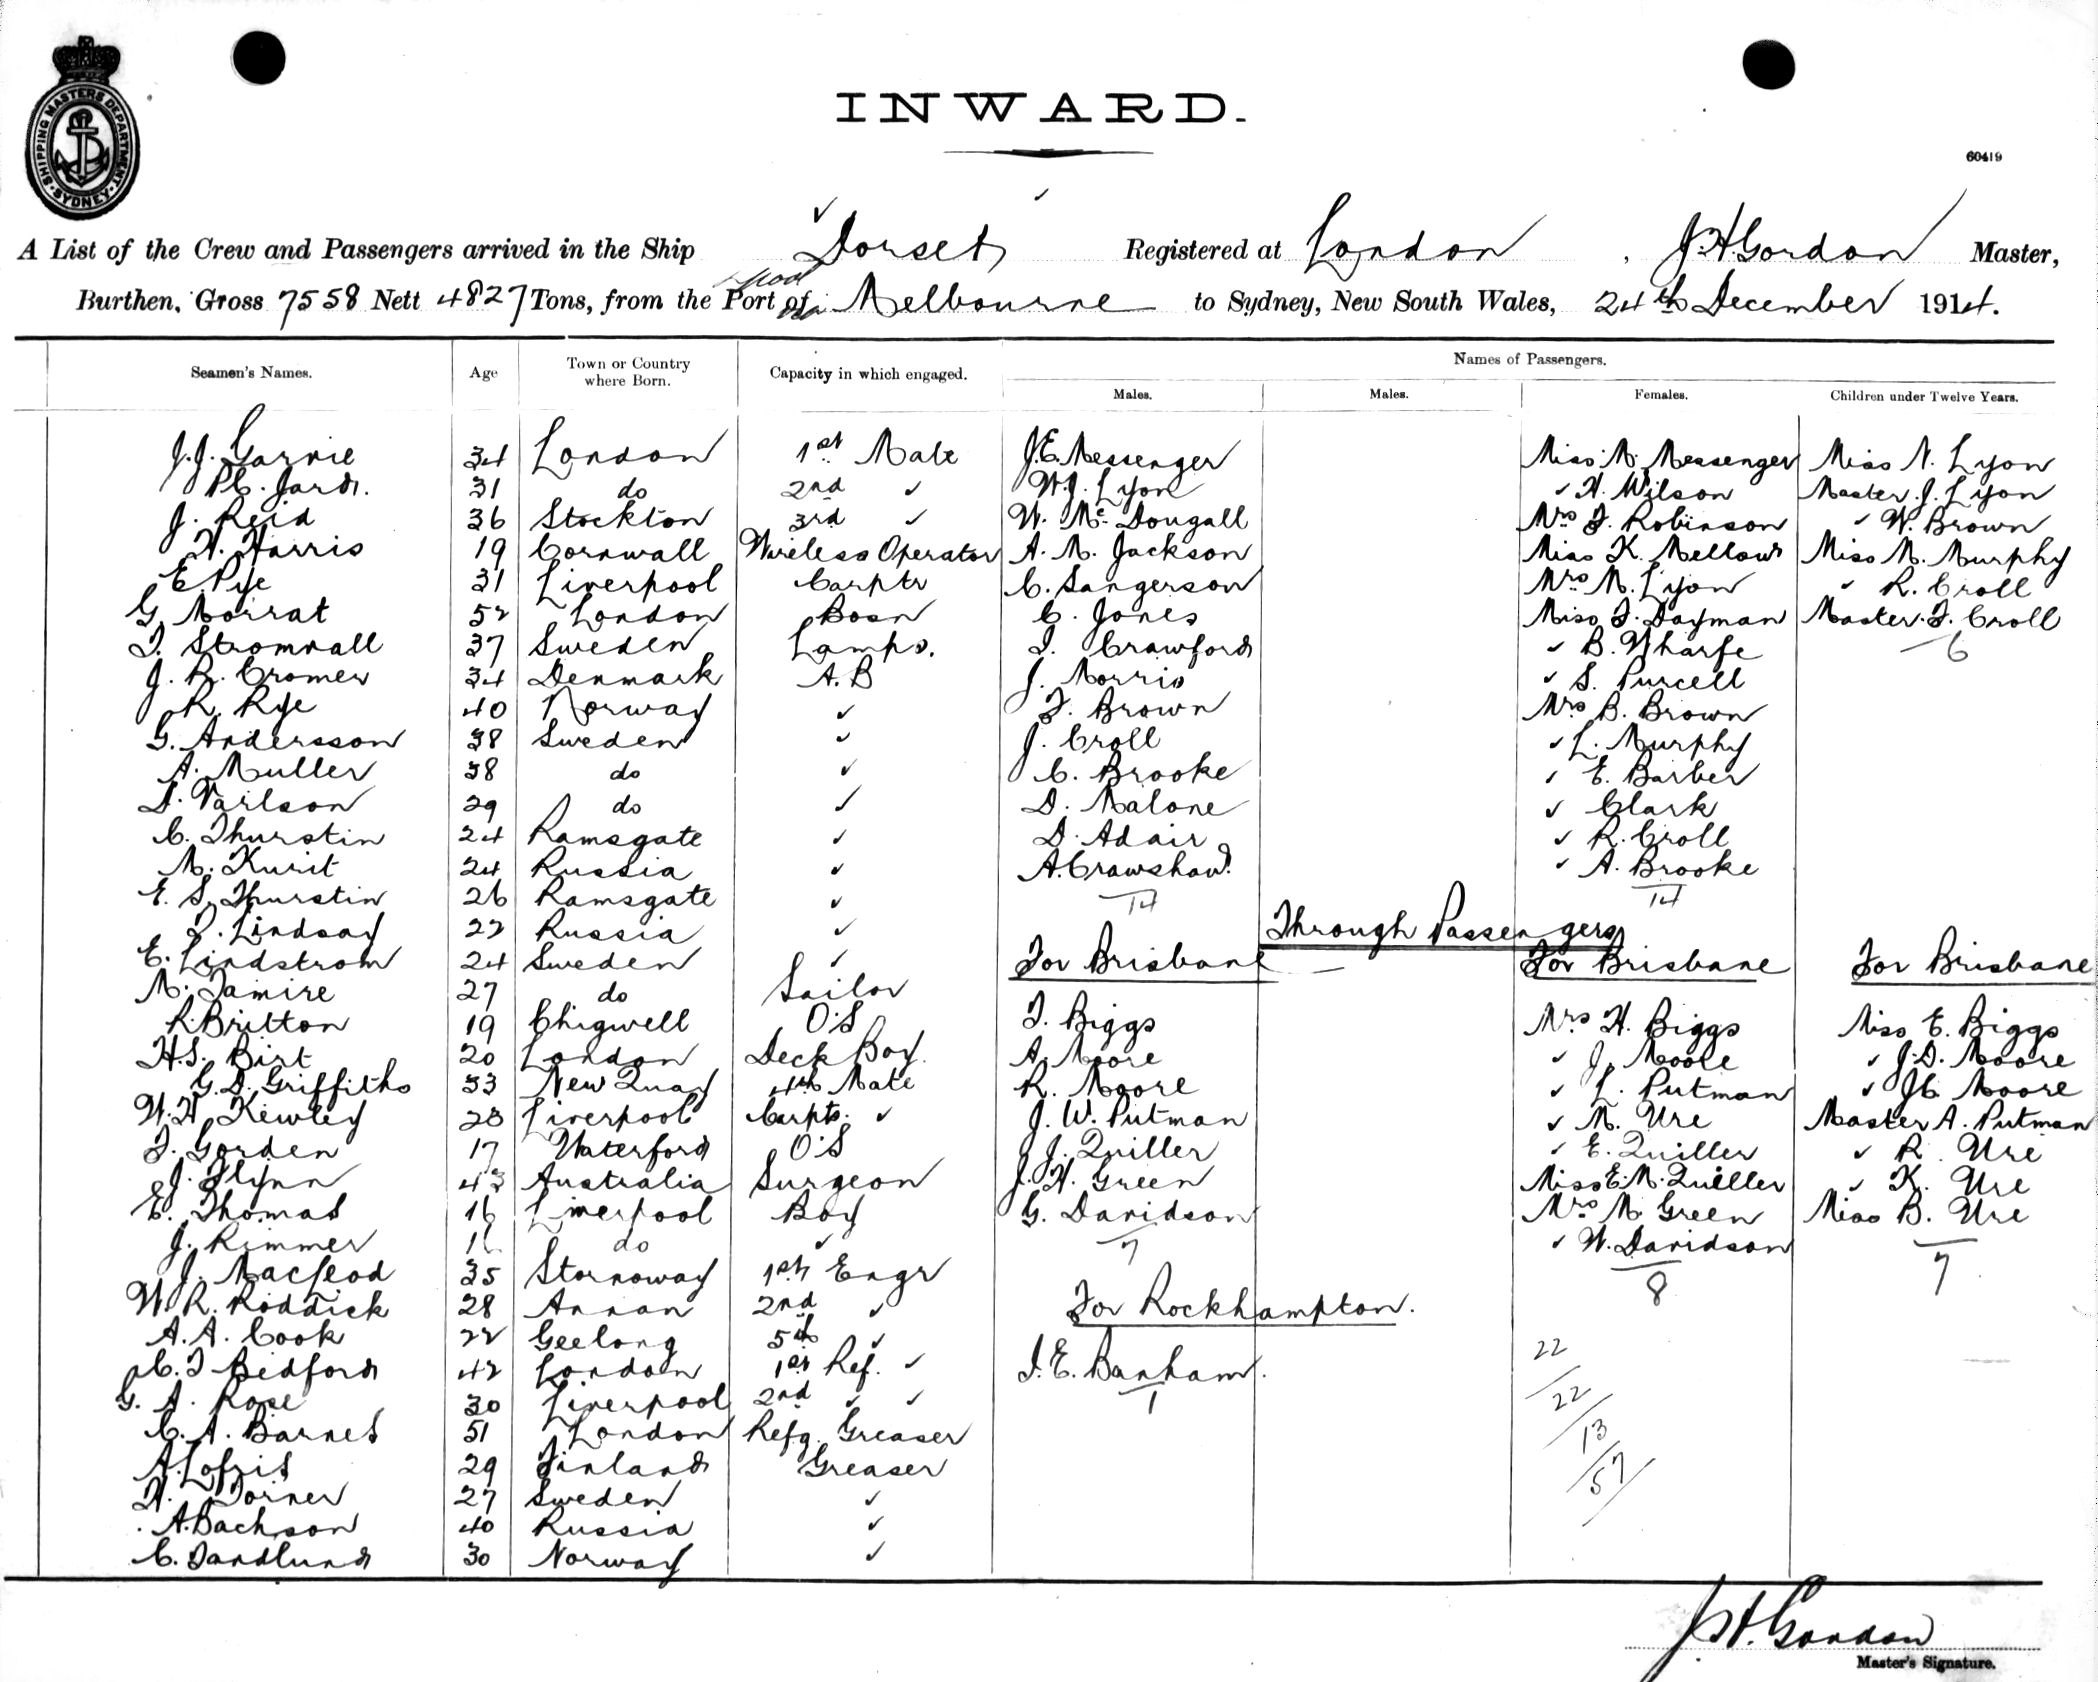 SHIPPING MASTERS DEPARTMENT · SYDNEY ·
INWARD.
60419
A List of the Crew and Passengers arrived in the Ship Dorset Registered at London, J. H. Gordon Master,
Burthen, Gross 7558 Nett 4827 Tons, from the Port of Melbourne to Sydney, New South Wales, 24th December 1914.
Seamen's Names. Age Town or Country where Born. Capacity in which engaged. Names of Passengers.
Males. Males. Females. Children under Twelve Years.
J.J. Garvie 34 London 1st Mate J.E. Messenger Miss M. Messenger Miss N. Lyon
31 do 2nd ✓ W.J. Lyon ✓ H. Wilson Master J. Lyon
J. Reid 36 Stockton 3rd ✓ W. Mc Dougall Mrs F. Robinson ✓ W. Brown
H. Harris 19 Cornwall Wireless Operator A. M. Jackson Miss K. Mellows Miss M. Murphy
E. Pye 31 Liverpool Carptr C. Sangerson Mrs M. Lyon ✓ R. Croll
G. Morrat 52 London Bosn C. Jones Miss F. Dayman Master F. Croll
T. Stromvall 37 Sweden Lamps. T. Crawford ✓ B. Wharfe 6
J. R. Cromer 34 Denmark A.B J. Morris ✓ S. Purcell
R. Rye 40 Norway ✓ F. Brown Mrs B. Brown
G. Andersson 38 Sweden ✓ J. Croll ✓ L. Murphy
A. Muller 38 do ✓ C. Brooke ✓ E. Barber
29 do ✓ D. Malone ✓ Clark
C. Thurstin 24 Ramsgate ✓ D. Adair ✓ R. Croll
M. Kurit 24 Russia ✓ A. Crawshaw ✓ A. Brooke
E. S. Thurstin 26 Ramsgate ✓ 14 14
Lindsay 22 Russia ✓ Through Passengers
E. Lindstrom 24 Sweden ✓ For Brisbane — For Brisbane For Brisbane
M. Tamire 27 do Sailor
R. Britton 19 Chigwell O.S F. Biggs Mrs H. Biggs Miss E. Biggs
H.S. Birt 20 London Deck Boy. A. Moore ✓ J. Moore ✓ J.D. Moore
G.D. Griffiths 33 New Quay 4th Mate R. Moore ✓ L. Putman ✓ J.C. Moore
W.H. Kewley 28 Liverpool Carptr. ✓ J. W. Putman ✓ M. Ure Master A. Putman
T. Gorden 17 Waterford O.S J. Quiller ✓ E. Quiller ✓ R. Ure
J. Flynn 43 Australia Surgeon J. H. Green Miss E.M. Quiller ✓ K. Ure
E. Thomas 16 Liverpool Boy G. Davidson Mrs M. Green Miss B. Ure
J. Rimmer 16 do ✓ 7 ✓ W. Davidson 7
J. Macleod 35 Stornoway 1st Engr 8
W. R. Roddick 28 Annan 2nd ✓ For Rockhampton.
A. A. Cook 22 Geelong 5th ✓ 22
C. F Bedford 42 London 1st Ref. ✓ T. E. Banham. 22
G. A. Rose 30 Liverpool 2nd ✓ ✓ 1
C. A. Barnes 51 London Refg. Greaser 13
A. Lofris 29 Finland Greaser 57
H. Torner 27 Sweden ✓
A. Bachson 40 Russia ✓
C. Sandlund 30 Norway ✓
J. H. Gordon
Master's Signature.